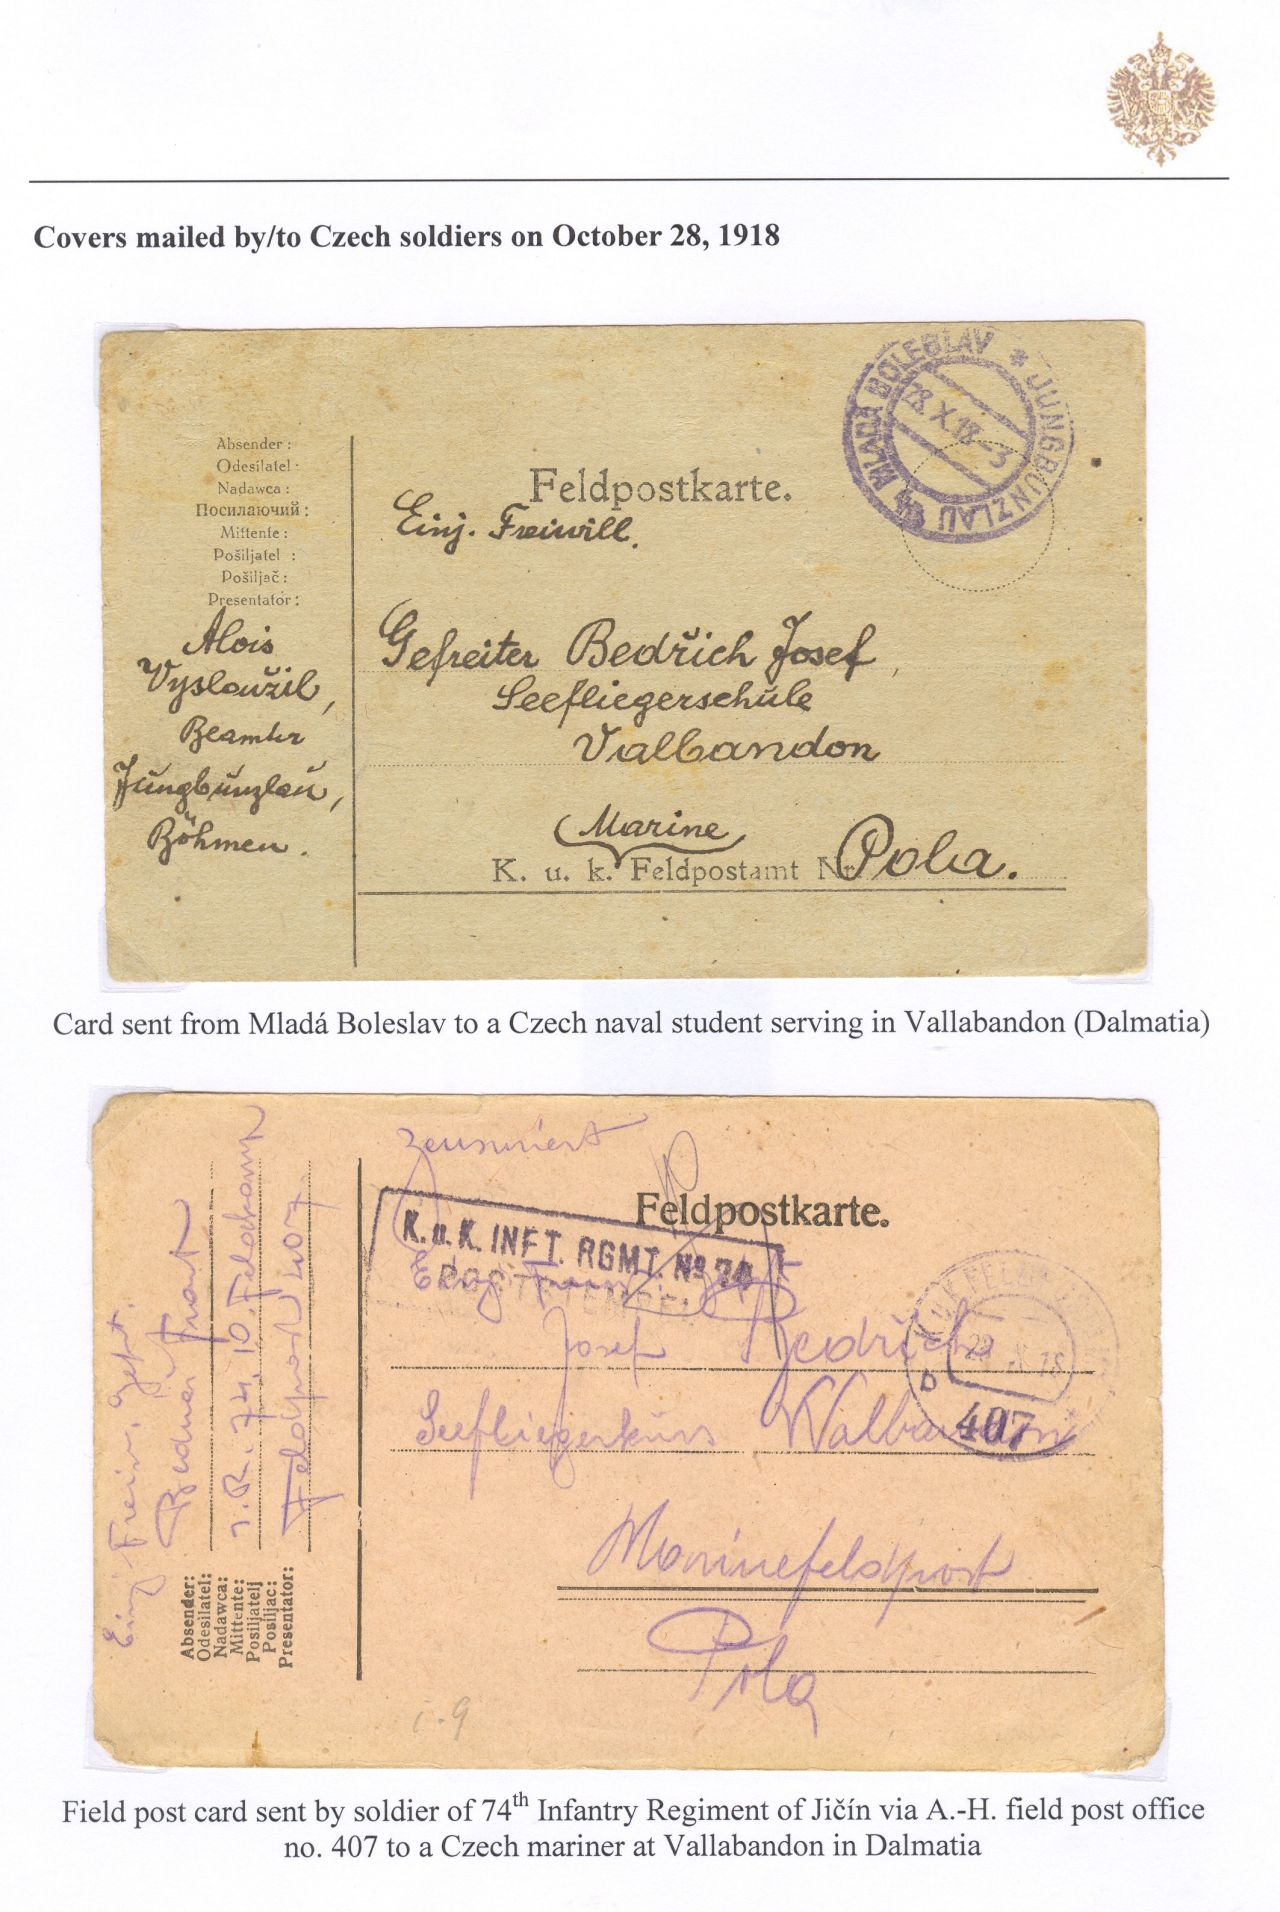 Covers mailed by/to Czech soldiers on October 28, 1918
MLADÁ BOLESLAV * JUNGBUNZLAU
28 X 18 -3
Absender:
Odesílatel:
Nadawca:
Посилаючий:
Mittente:
Pošiljatel :
Pošiljač:
Presentator:
Alois
Vysloužil,
Beamter
Jungbunzlau,
Böhmen.
Feldpostkarte.
Einj. Freiwill.
Gefreiter Bedřich Josef,
Seefliegerschule
Valbandon
(Marine)
K. u. k. Feldpostamt Nr Pola.
Card sent from Mladá Boleslav to a Czech naval student serving in Vallabandon (Dalmatia)
zensuriert
Feldpostkarte.
K. u. K. INFT. RGMT. No 74
Josef Bedřich
Seefliegerkurs Walbandon
Marinefeldpost
Pola
K.u.K. FELDPOSTAMT
28 X 18
b
407
Einj. Freiw. Gefr.
J. R. 74. 10. Feldkomp
Feldpost 407.
Absender:
Odesilatel:
Nadawca:
Mittente:
Posiljatelj
Posiljac:
Presentator:
i-9
Field post card sent by soldier of 74th Infantry Regiment of Jičín via A.-H. field post office
no. 407 to a Czech mariner at Vallabandon in Dalmatia